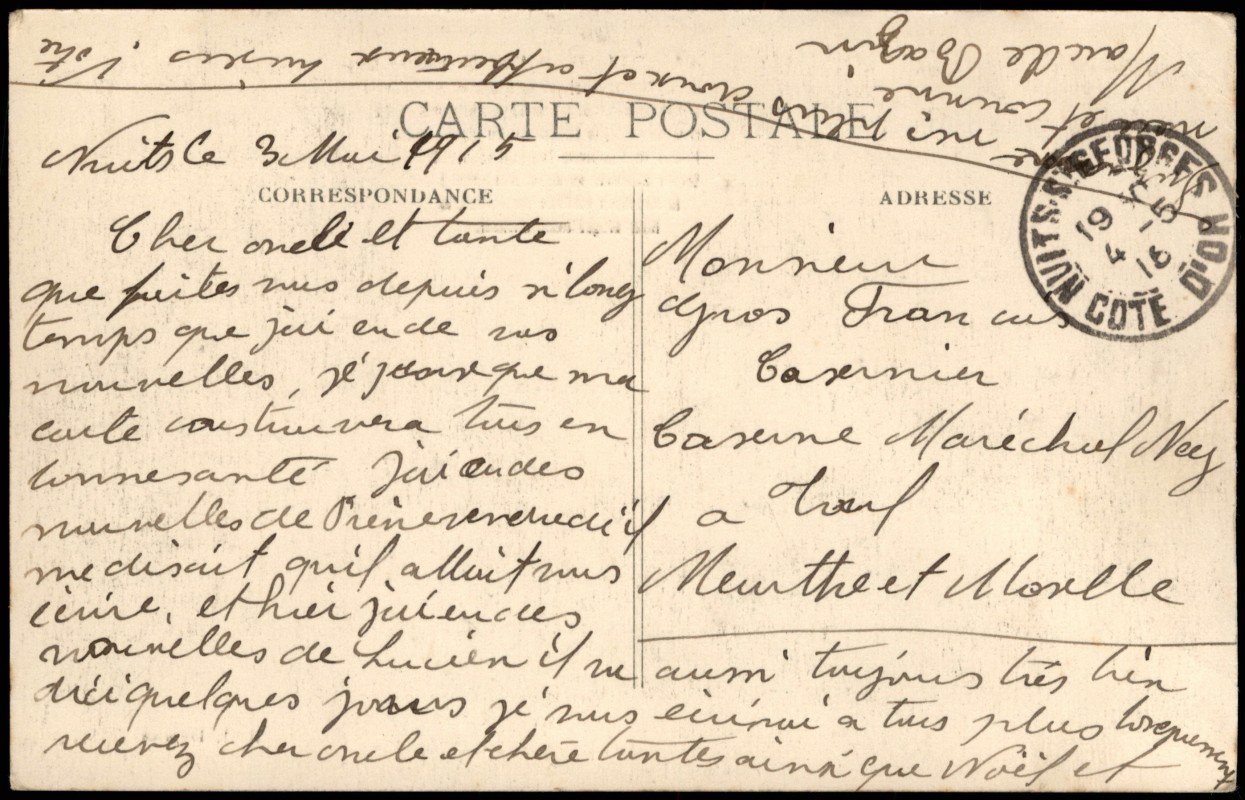 CARTE POSTALE
Nuits le 3 Mai 1915
CORRESPONDANCE
Cher oncle et tante
que faites vous depuis si long
temps que jai eu de vos
nouvelles, jé que ma
carte vous trouvera tous en
bonne santé jai eu des
nouvelles de vendredi il
me disait quil allait vous
écrire, et hier jai eu des
nouvelles de Lucien il va aussi toujours trés bien
dici quelques jours jé vous écrirai a tous plus longuement
recevez cher oncle et chére tantes ainsi que Noël et
mes plus doux et affectueux baisers Votre
niéce et cousine
Bazin
ADRESSE
Monsieur
Francois
Casernier
Caserne Maréchal Ney
a Toul
Meurthe et Moselle
NUITS-ST-GEORGES COTE D'OR
19 *
4 -5
15